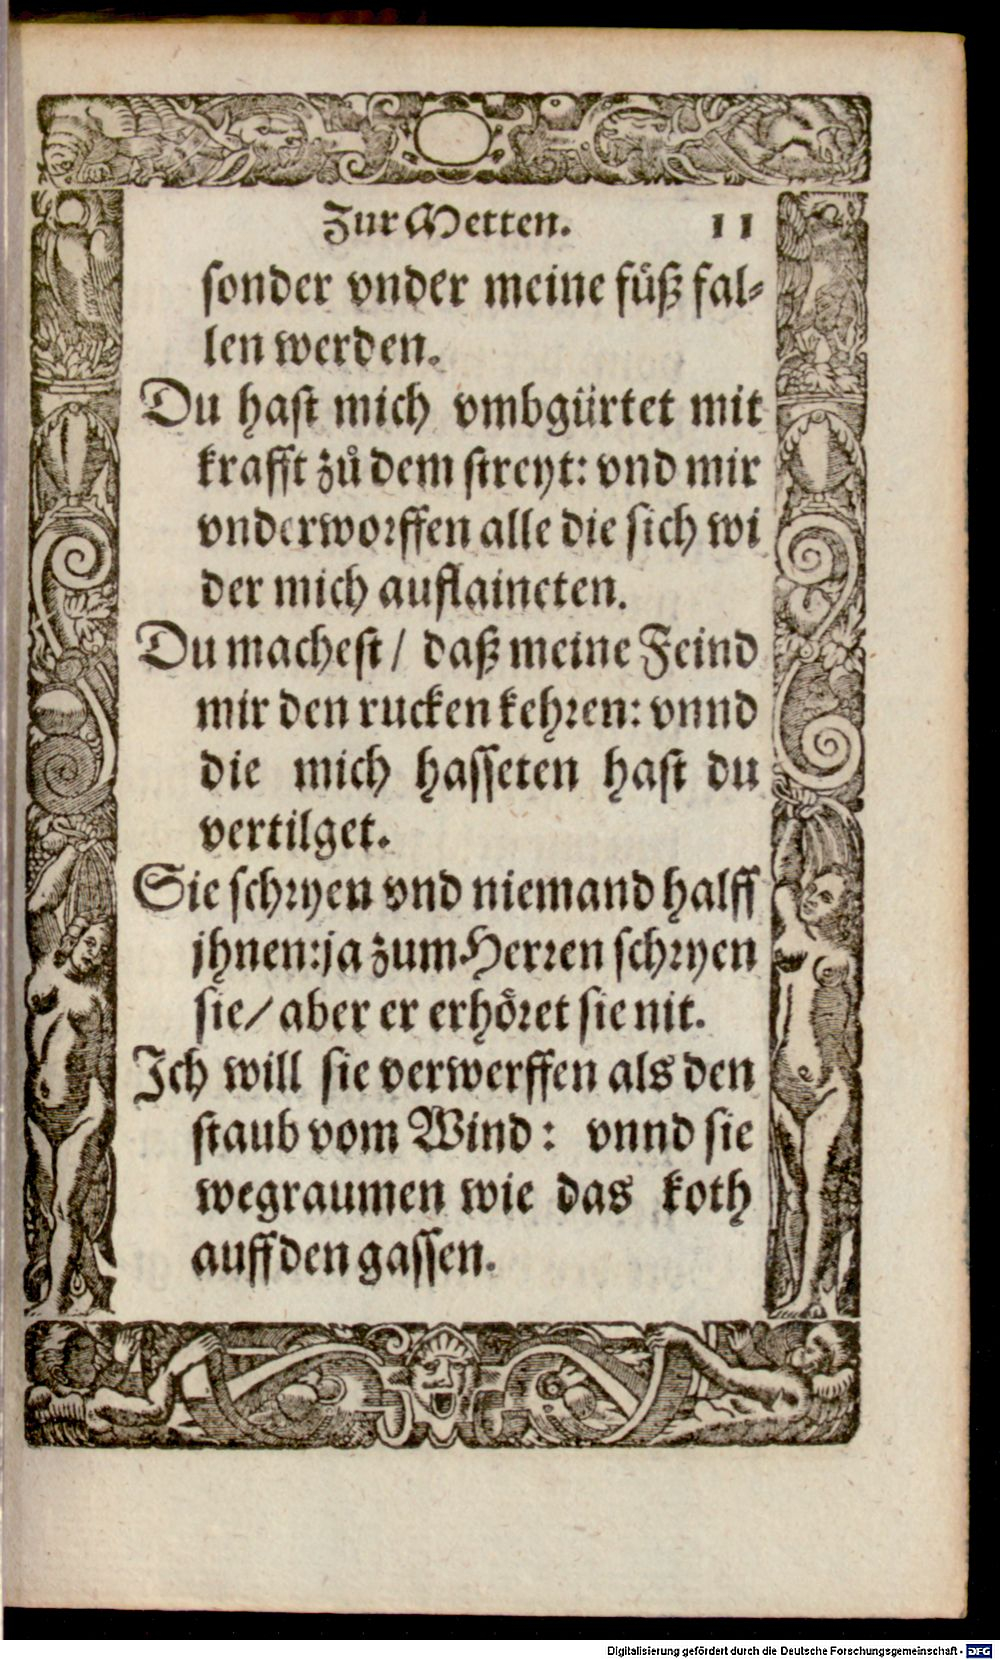 Zur Metten. 11
sonder vnder meine füß fal-
len werden.
Du hast mich vmbgürtet mit
krafft zů dem streyt: vnd mir
vnderworffen alle die sich wi
der mich auflaineten.
Du machest / daß meine Feind
mir den rucken kehren: vnnd
die mich hasseten hast du
vertilget.
Sie schryen vnd niemand halff
jhnen: ja zum Herren schryen
sie / aber er erhöret sie nit.
Ich will sie verwerffen als den
staub vom Wind: vnnd sie
wegraumen wie das koth
auff den gassen.
Digitalisierung gefördert durch die Deutsche Forschungsgemeinschaft - DFG